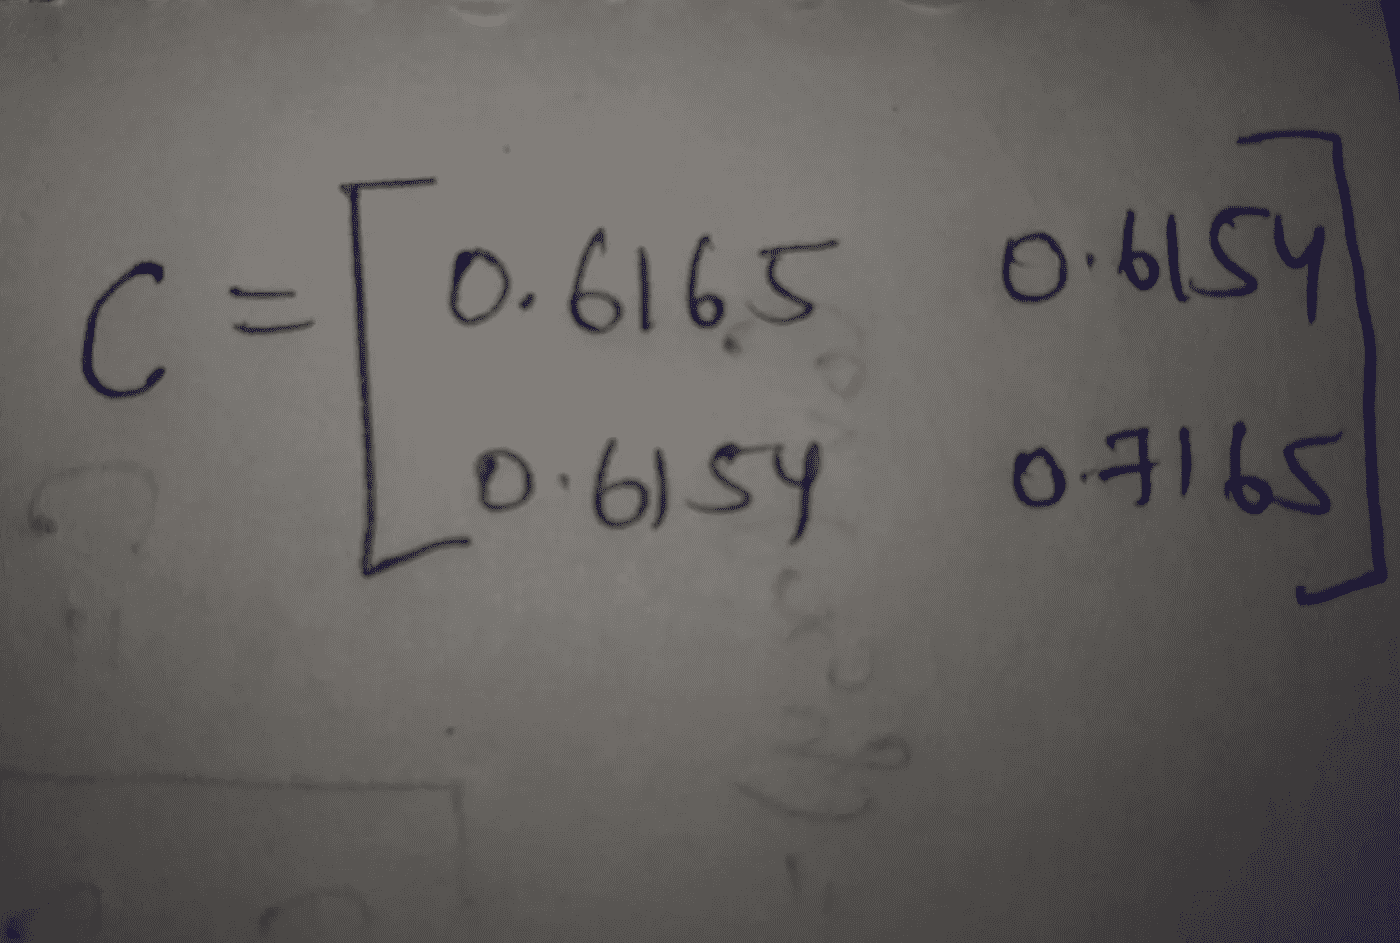 C = [ 0.6165 0.6154
0.6154 0.7165 ]